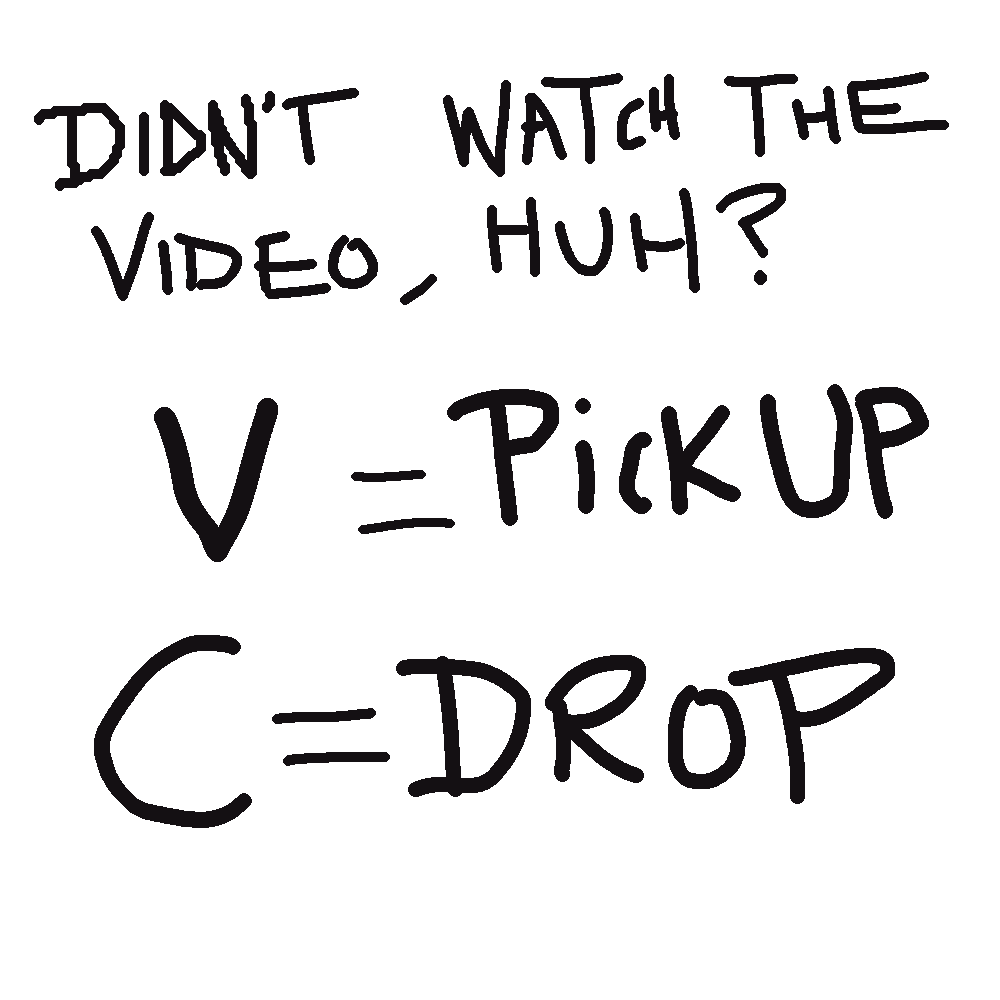 DIDN'T WATCH THE
VIDEO, HUH?
V = PiCKUP
C = DROP